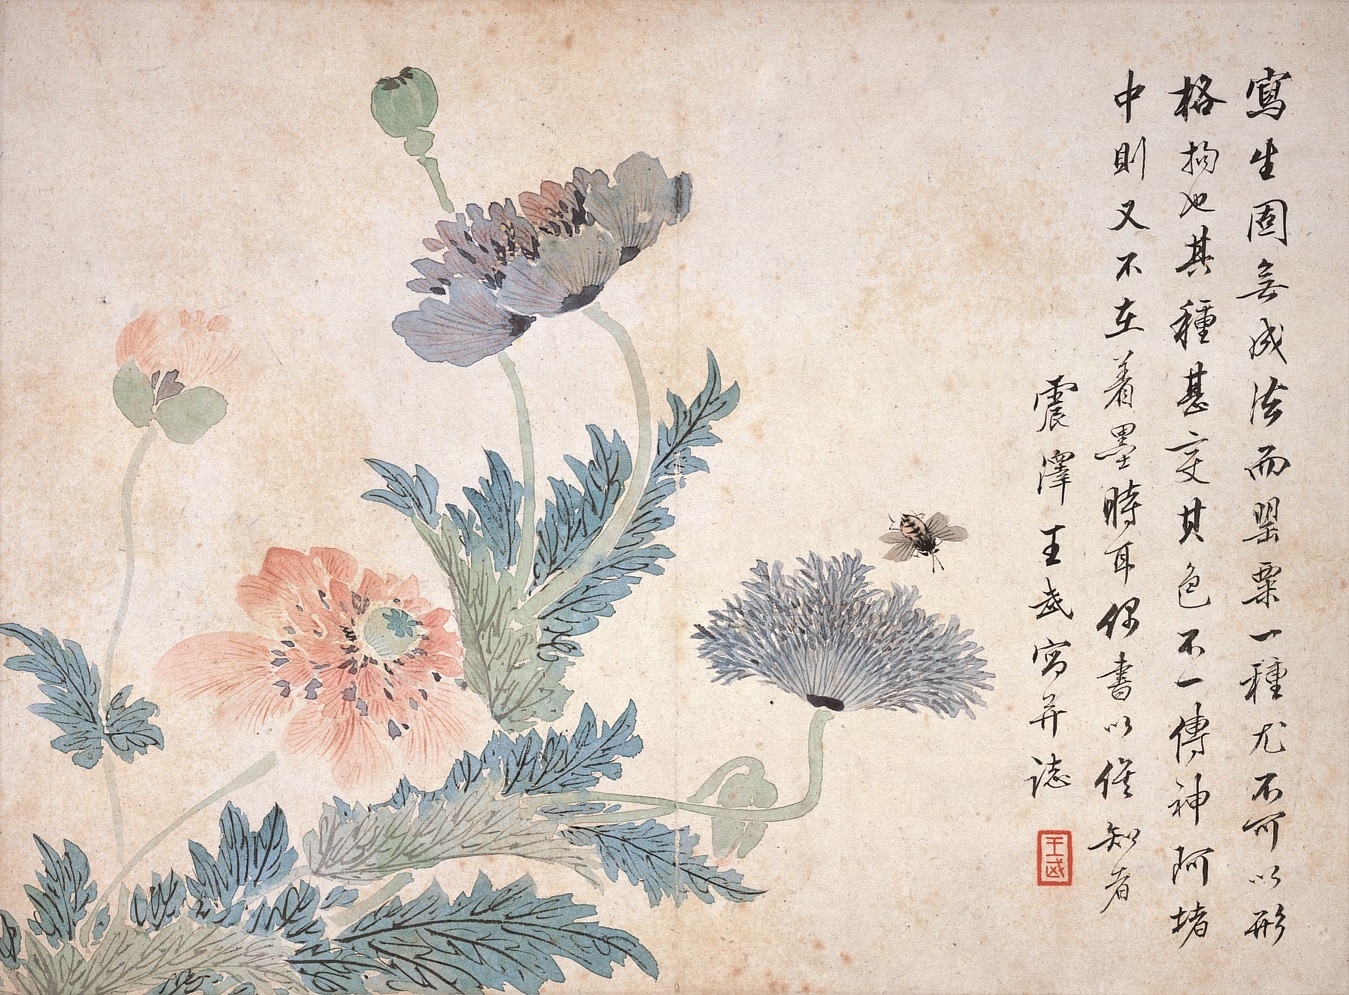 寫生固無成法而罌粟一種尤不可以形
格拘也其種甚变其色不一傳神阿堵
中則又不在着墨時耳偶書以俟知者
震澤王武寫并誌
王武